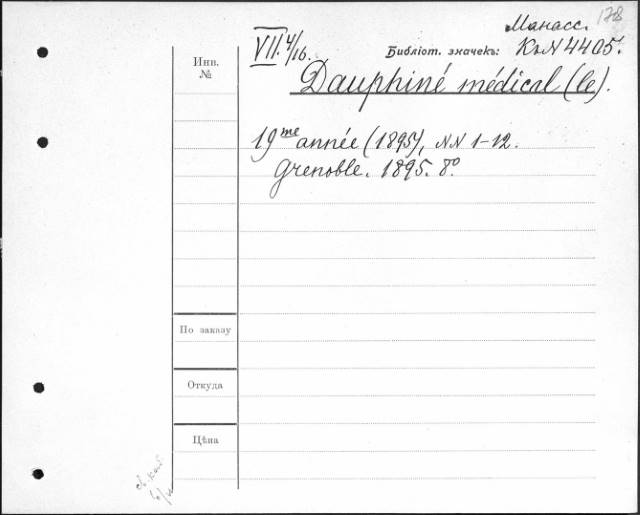 178
Манасс.
VII. 4/16.
Библіот. значекъ: К№ 4405.
Инв.
№
Dauphiné médical (le).
19me année (1895), NN 1-12.
Grenoble. 1895. 8º.
По заказу
Откуда
Цѣна